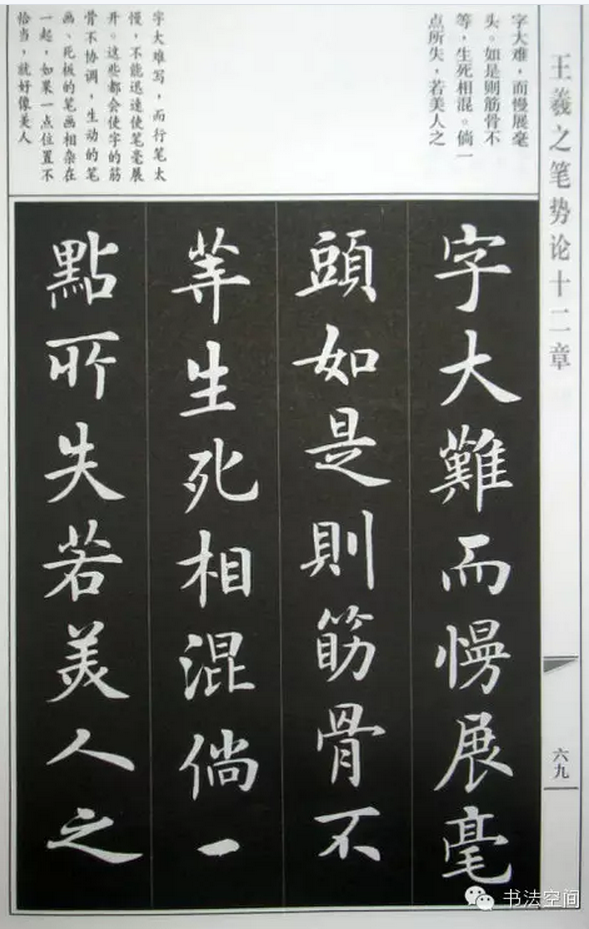 王羲之笔势论十二章
六九
字大难，而慢展毫
头。如是则筋骨不
等，生死相混。倘一
点所失，若美人之
字大难写，而行笔太
慢，不能迅速使笔毫展
开。这些都会使字的筋
骨不协调，生动的笔
画、死板的笔画相杂在
一起，如果一点位置不
恰当，就好像美人
字大難而慢展毫
頭如是則筋骨不
等生死相混倘一
點所失若美人之
书法空间